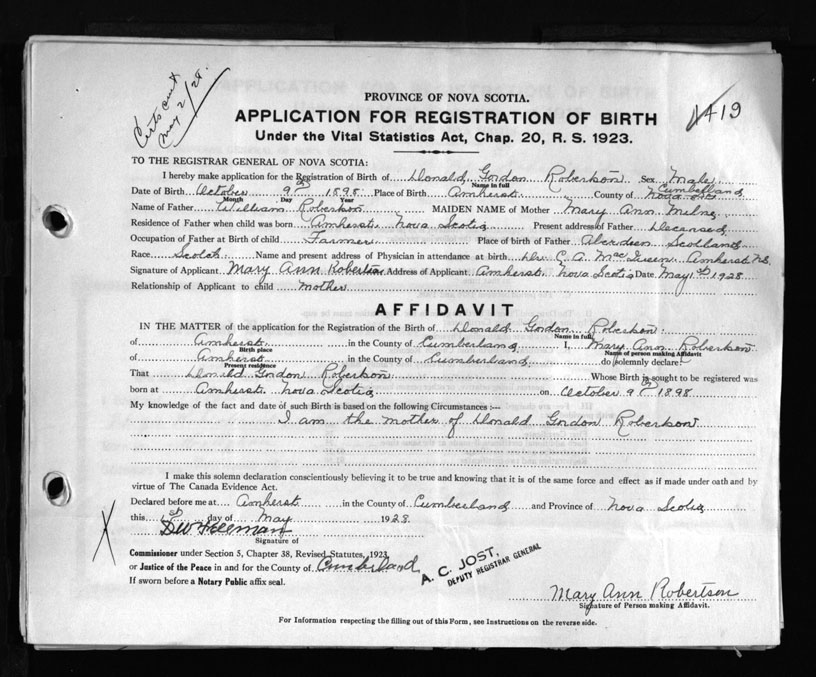 Certs cut
May 2/28.
PROVINCE OF NOVA SCOTIA.
4419
APPLICATION FOR REGISTRATION OF BIRTH
Under the Vital Statistics Act, Chap. 20, R. S. 1923.
TO THE REGISTRAR GENERAL OF NOVA SCOTIA:
I hereby make application for the Registration of Birth of Donald Gordon Robertson Sex Male
Name in full
Date of Birth October 9th 1898 Place of Birth Amherst County of Cumberland Nova
Month Day Year
Name of Father William Robertson MAIDEN NAME of Mother Mary Ann Milne
Residence of Father when child was born Amherst, Nova Scotia Present address of Father Deceased
Occupation of Father at Birth of child Farmer Place of birth of Father Aberdeen Scotland
Race Scotch Name and present address of Physician in attendance at birth Dr. C. A. Amherst N.S.
Signature of Applicant Mary Ann Robertson Address of Applicant Amherst, Nova Scotia Date May 1928
Relationship of Applicant to child mother
AFFIDAVIT
IN THE MATTER of the application for the Registration of the Birth of Donald Gordon Robertson
Name in full
of Amherst in the County of Cumberland I, Mary Ann Robertson
Birth place Name of person making Affidavit
of Amherst in the County of Cumberland do solemnly declare:
Present residence
That Donald Gordon Robertson Whose Birth is sought to be registered was
born at Amherst, Nova Scotia on October 9th 1898
My knowledge of the fact and date of such Birth is based on the following Circumstances :—
I am the mother of Donald Gordon Robertson
I make this solemn declaration conscientiously believing it to be true and knowing that it is of the same force and effect as if made under oath and by
virtue of The Canada Evidence Act.
Declared before me at Amherst in the County of Cumberland and Province of Nova Scotia
this 1st day of May 1928
Signature of
Commissioner under Section 5, Chapter 38, Revised Statutes, 1923,
or Justice of the Peace in and for the County of Cumberland
If sworn before a Notary Public affix seal.
A. C. JOST,
DEPUTY REGISTRAR GENERAL
Mary Ann Robertson
Signature of Person making Affidavit.
For Information respecting the filling out of this Form, see Instructions on the reverse side.